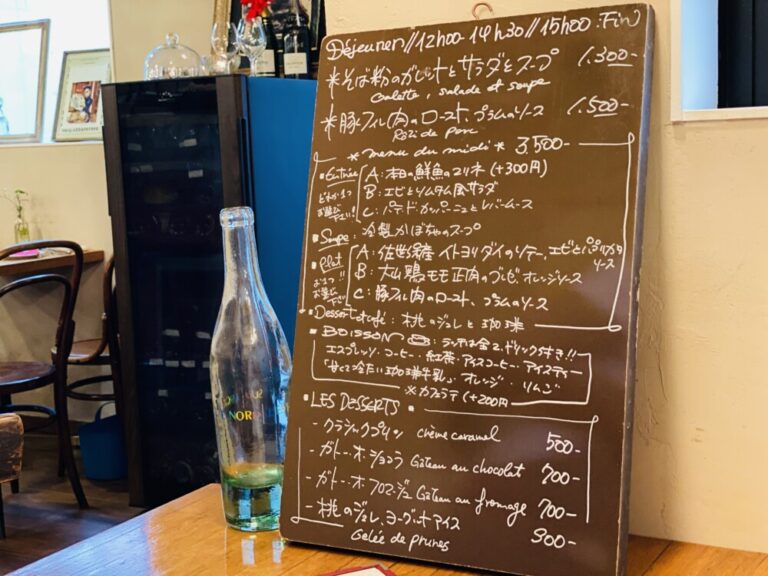 Déjeuner // 12h00-14h30 // 15h00 :Fin
*そば粉のガレットとサラダとスープ 1.300-
Galette, salade et soupe
*豚フィレ肉のロースト、プラムのソース 1.500-
Rôti de porc
*menu du midi* 3,500-
•Entrée どれか1つお選び下さい!! A:本日の鮮魚のマリネ (+300円)
B:エビとソムタム風サラダ
C:パテ・ド・カンパーニュとレバームース
•Soupe:冷製かぼちゃのスープ
•Plat お1つお選び下さい!! A:佐世保産イトヨリダイのソテー、エビとパプリカのソース
B:大山鶏モモ正肉のブレゼ、オレンジソース
C:豚フィレ肉のロースト、プラムのソース
•Dessert et café:桃のジュレと珈琲
•BOISSON ランチは全て、ドリンク付き!!
エスプレッソ・コーヒー・紅茶・アイスコーヒー・アイスティー
「甘くて冷たい珈琲牛乳」オレンジ・りんご
※カフェラテ (+200円
•LES DESSERTS•
-クラシックプリン crème caramel 500-
-ガトー・オ・ショコラ Gâteau au chocolat 700-
-ガトー・オ・フロマージュ Gâteau au fromage 700-
-桃のジュレ、ヨーグルトアイス 900-
Gelée de prunes
NOR